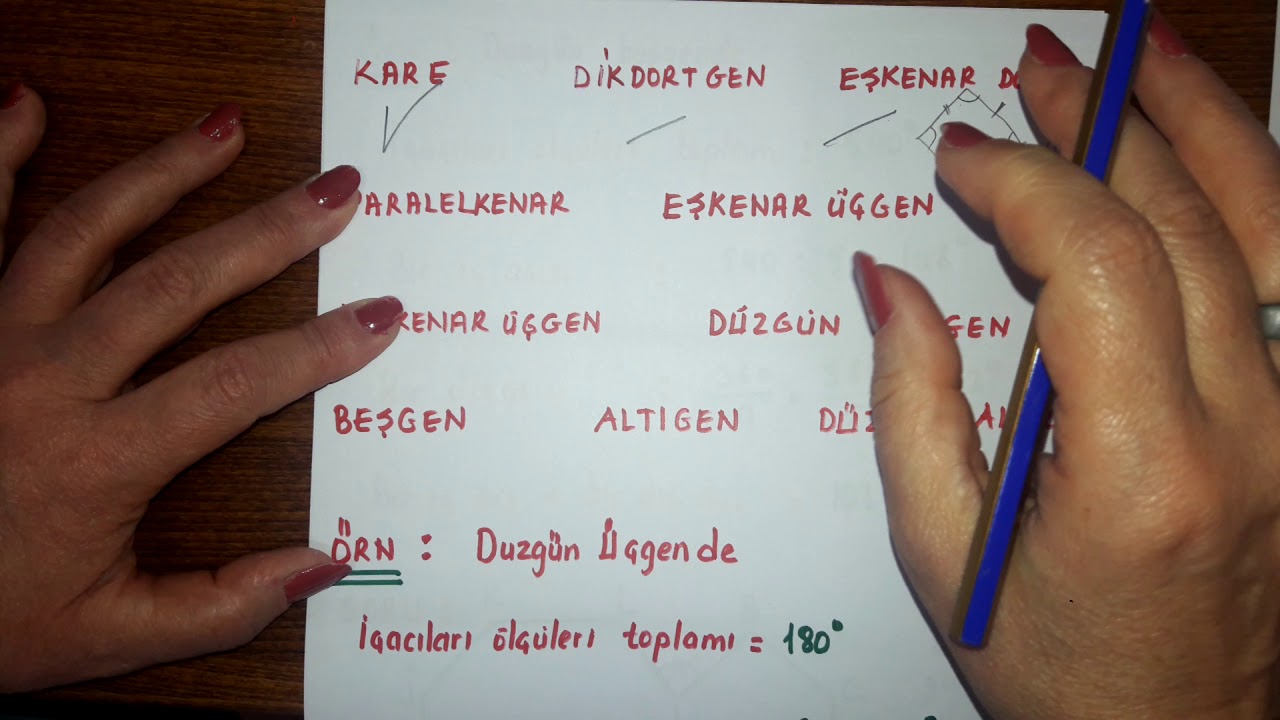 KARE DİKDORTGEN EŞKENAR
ARALELKENAR EŞKENAR ÜÇGEN
KENAR ÜÇGEN DÜZGÜN GEN
BEŞGEN ALTIGEN
ÖRN : Duzgün Üçgende
İçacıları ölçüleri toplamı = 180°